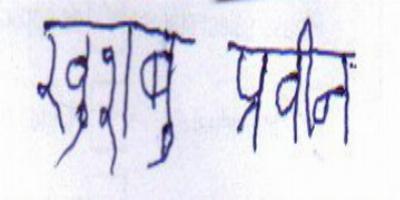 खुशबु प्रवीन